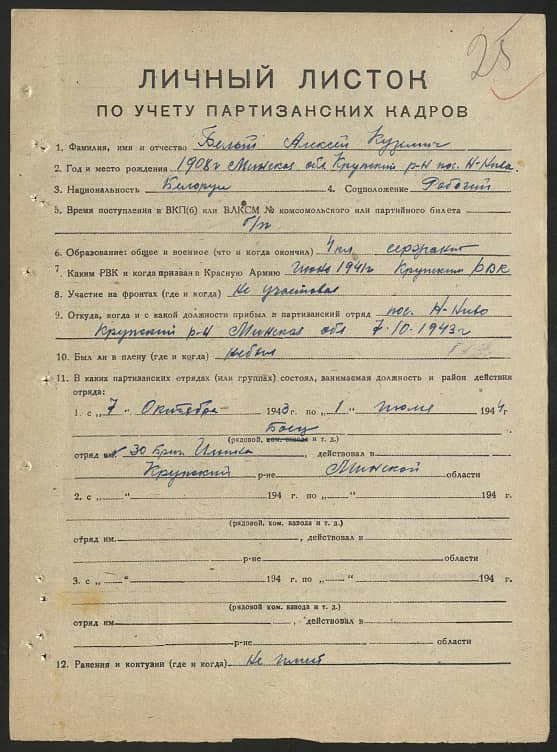 25
ЛИЧНЫЙ ЛИСТОК
ПО УЧЕТУ ПАРТИЗАНСКИХ КАДРОВ
1. Фамилия, имя и отчество Белый Алексей Кузьмич
2. Год и место рождения 1908 г Минская обл Крупский р-н пос. Н-Нива.
3. Национальность Белорус 4. Соцположение Рабочий
5. Время поступления в ВКП(б) или ВЛКСМ № комсомольского или партийного билета
б/п
6. Образование: общее и военное (что и когда окончил) 4 кл сержант
7 Каким РВК и когда призван в Красную Армию Июнь 1941 г Крупским РВК
8. Участие на фронтах (где и когда) не участвовал
9. Откуда, когда и с какой должности прибыл в партизанский отряд пос. Н-Ниво
Крупский р-н Минская обл 7.10.1943 г
10. Был ли в плену (где и когда) небыл
11. В каких партизанских отрядах (или группах) состоял, занимаемая должность и район действия
отряда:
1. с „7" Октября 1943 г. по „1" июля 1944 г
Боец
(рядовой, ком. взвода и т. д.)
отряд им. 30 бриг. , действовал в
Крупский р-не Минской области
2. с „ " 194 г. по „ " 194 г.
(рядовой, ком. взвода и т. д.)
отряд им. , действовал в
р-не области
3. с „ " 194 г. по „ " 194 г.
(рядовой, ком. взвода и т. д.)
отряд им. , действовал в
р-не области
12. Ранения и контузии (где и когда) Не имеет